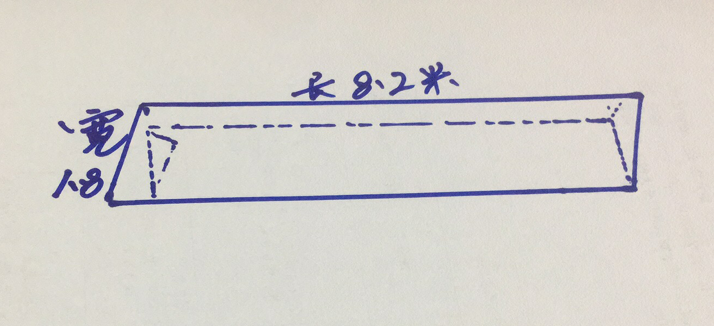 长 8.2米
宽
1.8